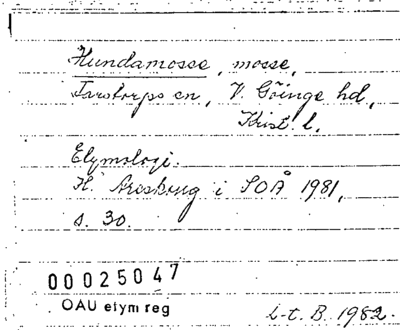 Hundamosse, mosse,
Farstorps sn, V. Göinge hd,
Krist. l.
Etymologi.
H. Areskoug i SOÅ 1981,
s. 30.
00025047
OAU etym reg
i-t. B. 1982.